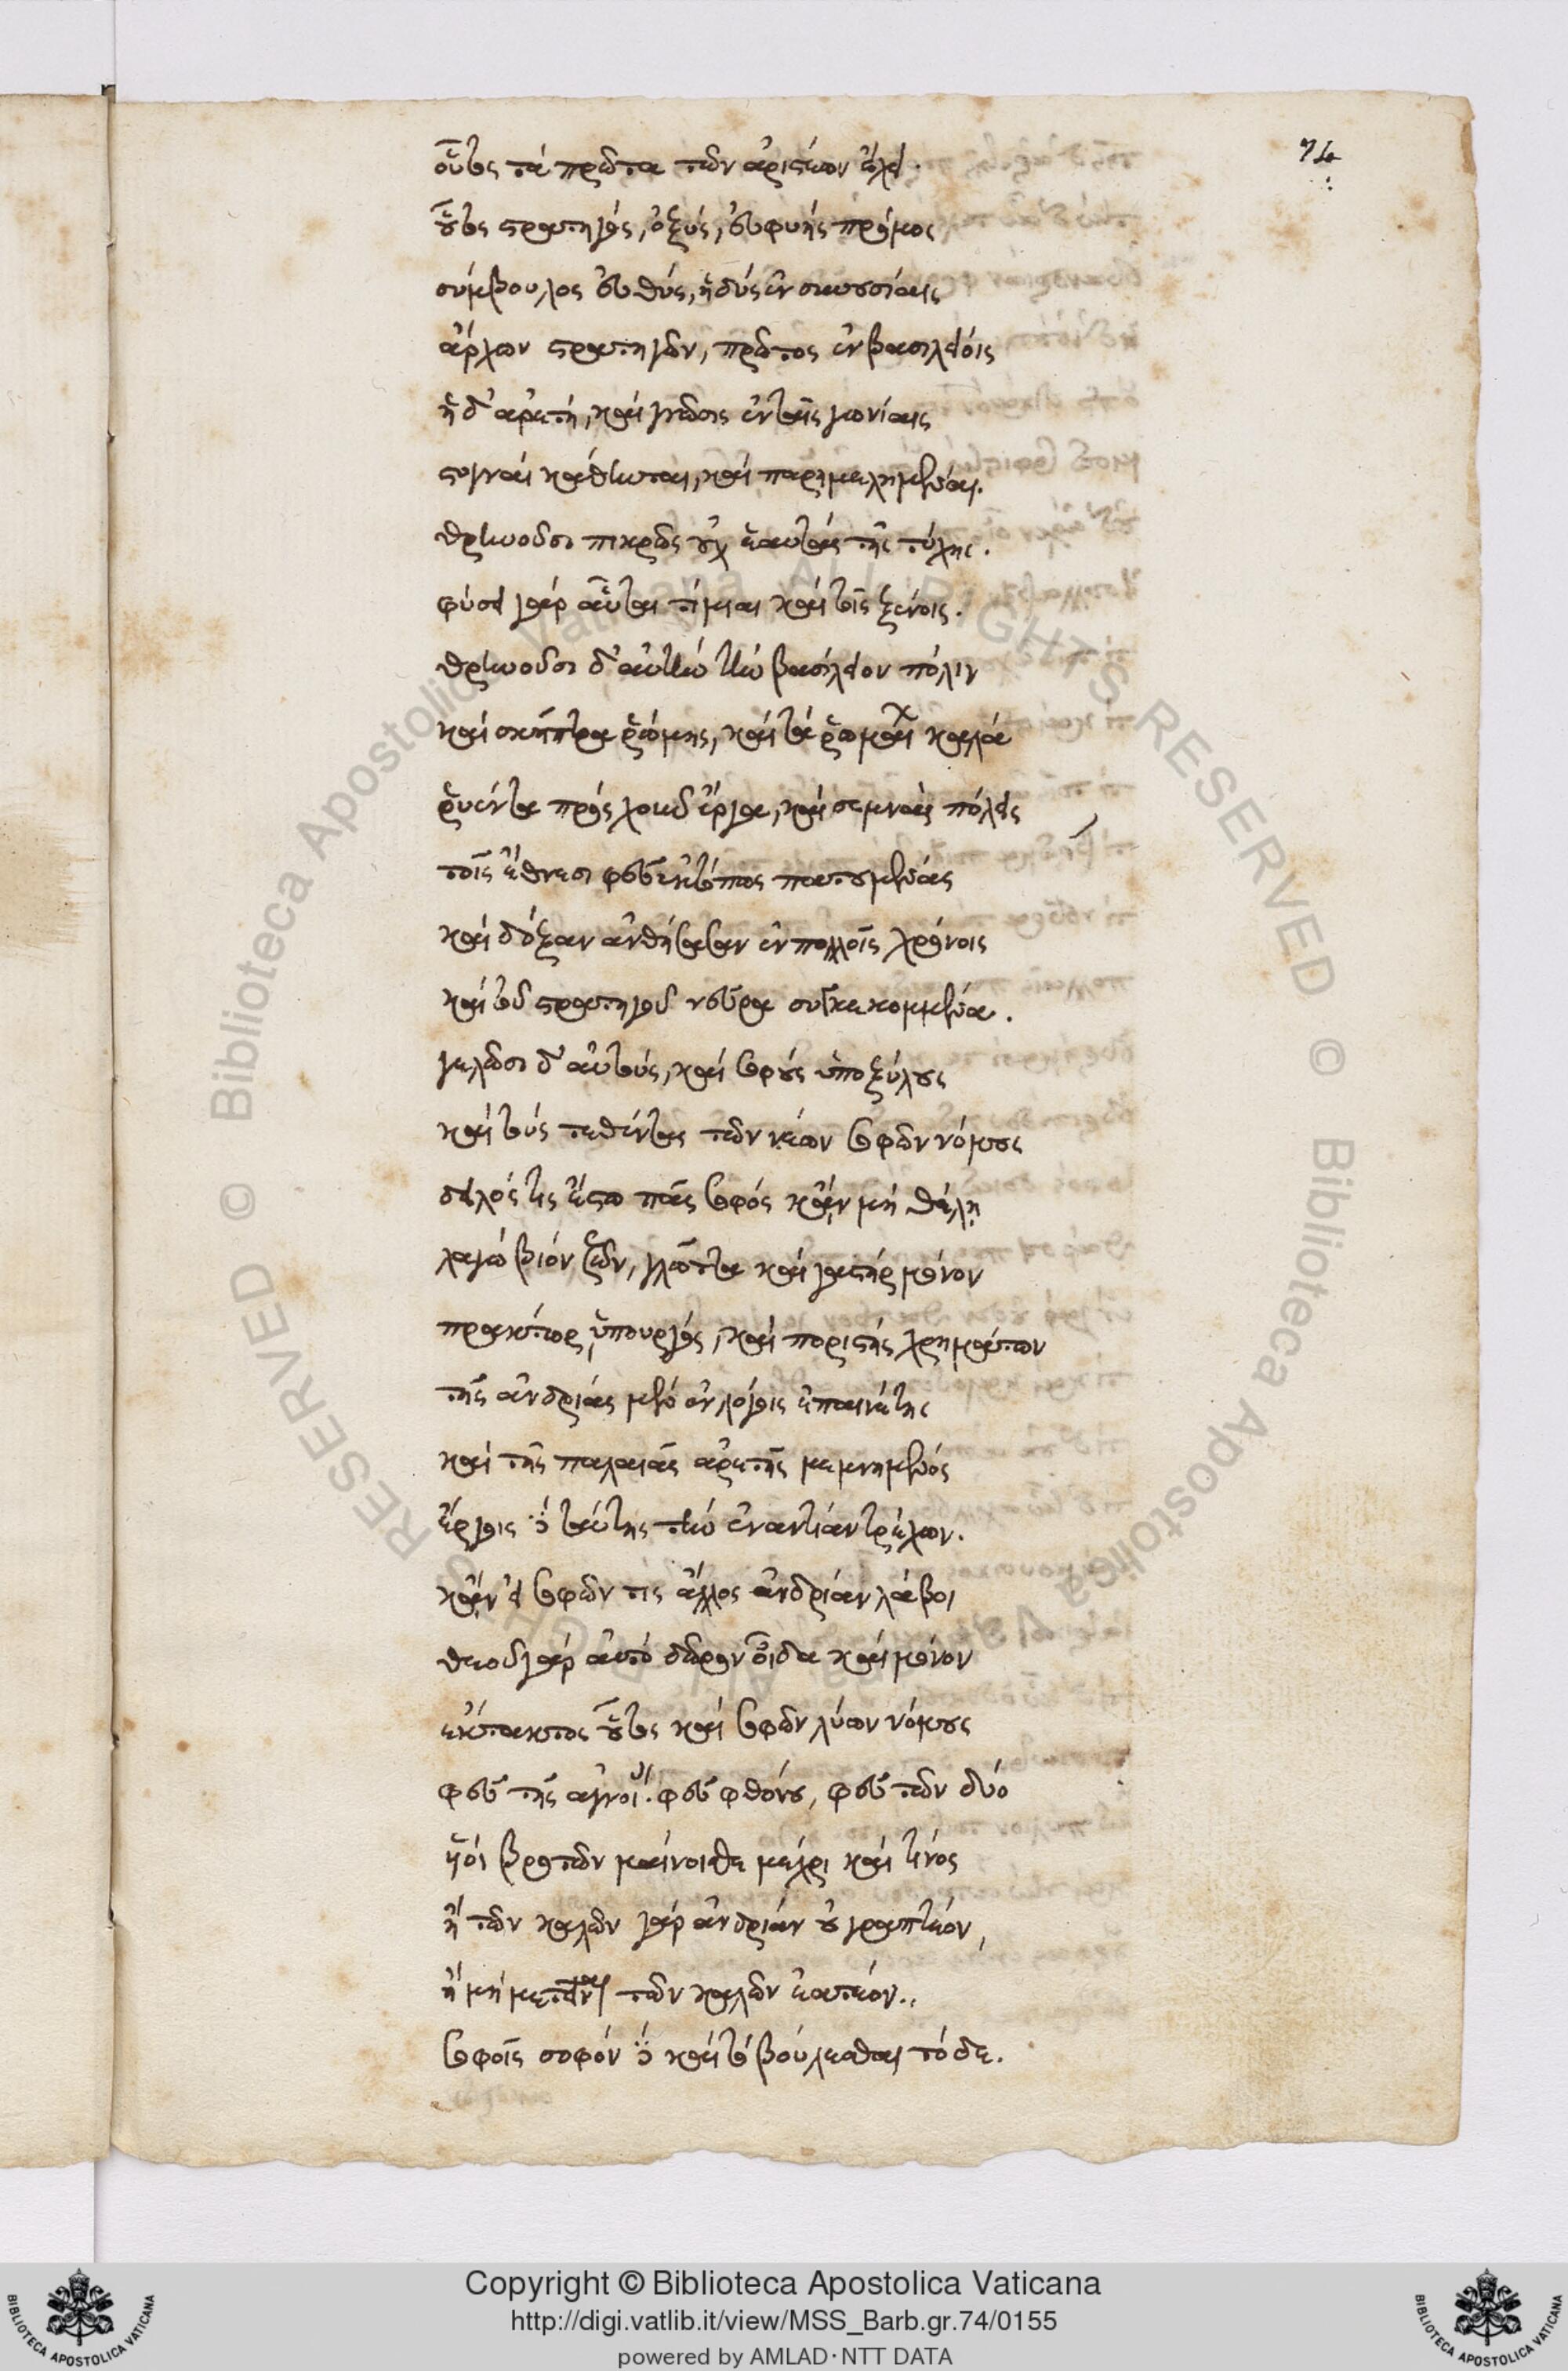 74
οὗτος τὰ πρῶτα τῶν ἀριστέων ἔχει.
οὗτος στρατηγός, ὀξύς, εὐφυής πρόμος
σύμβουλος εὐθύς, ἡδύς ἐν συυσσίαις
ἄρχων στρατηγῶν, πρῶτος ἐν βασιλείοις
ἡ δ' ἀρετή, καὶ γνῶσις ἐν ταῖς γωνίαις
στυγναί κάθηνται, καὶ παρημελημέναι.
θρηνοῦσι πικρῶς οὐχ ἑαυτάς τῆς τύχης.
φύσει γάρ αὗται τίμιαι καὶ τοῖς ξένοις.
θρηνοῦσι δ' αὐτήν τήν βασίλειον πόλιν
καὶ σκῆπτρα ῥώμης, καὶ τά ῥωμαϊκ καλά
ῥυέντα πρός χοῦ δ' ἔργα, καὶ σεμνάς πόλεις
τοῖς ἔθνεσι φεῦ ἐκτόπως πατουμένας
καὶ δόξαν ἀνθήσασαν ἐν πολλοῖς χρόνοις
καὶ τοῦ στρατηγοῦ νεῦρα συγκεκομμένα.
γελῶσι δ' αὐτούς, καὶ σοφούς ὑποξύλους
καὶ τούς τεθέντας τῶν νέων σοφῶν νόμους
δειλός τις ἔστω πᾶς σοφός κἄν μή θέλῃ
λαγώ βιόν ζῶν, γλῶττα καὶ γαστήρ μόνον
πράκτωρ, ὑπουργός, καὶ ποριστής χρημάτων
τῆς ἀνδρίας μέν ἐν λόγοις ἐπαινέτης
καὶ τῆς παλαιᾶς ἀρετῆς μεμνημένος
ἔργοις δέ ταύτης τήν ἐναντίαν τρέχων.
κἄν εἰ σοφῶν τις ἄλλος ἀνδρίαν λάβοι
θεοῦ γάρ αὐτό δῶρον οἶδα καὶ μόνον
ἔκπτωτος οὗτος καὶ σοφῶν λύων νόμους
φεῦ τῆς ἀγνοί. φεῦ φθόνου, φεῦ τῶν δύο
ἢ οἱ βροτῶν μαίνοισθε μέχρι καὶ τίνος
ἢ τῶν καλῶν γάρ ἀνδρίαν οὐ γραπτέον,
ἢ μή μετεῖναι τῶν καλῶν ἐατέον..
σοφοῖς σοφόν δέ καὶ τό βούλεσθαι τόδε.
Copyright © Biblioteca Apostolica Vaticana
http://digi.vatlib.it/view/MSS_Barb.gr.74/0155
powered by AMLAD·NTT DATA